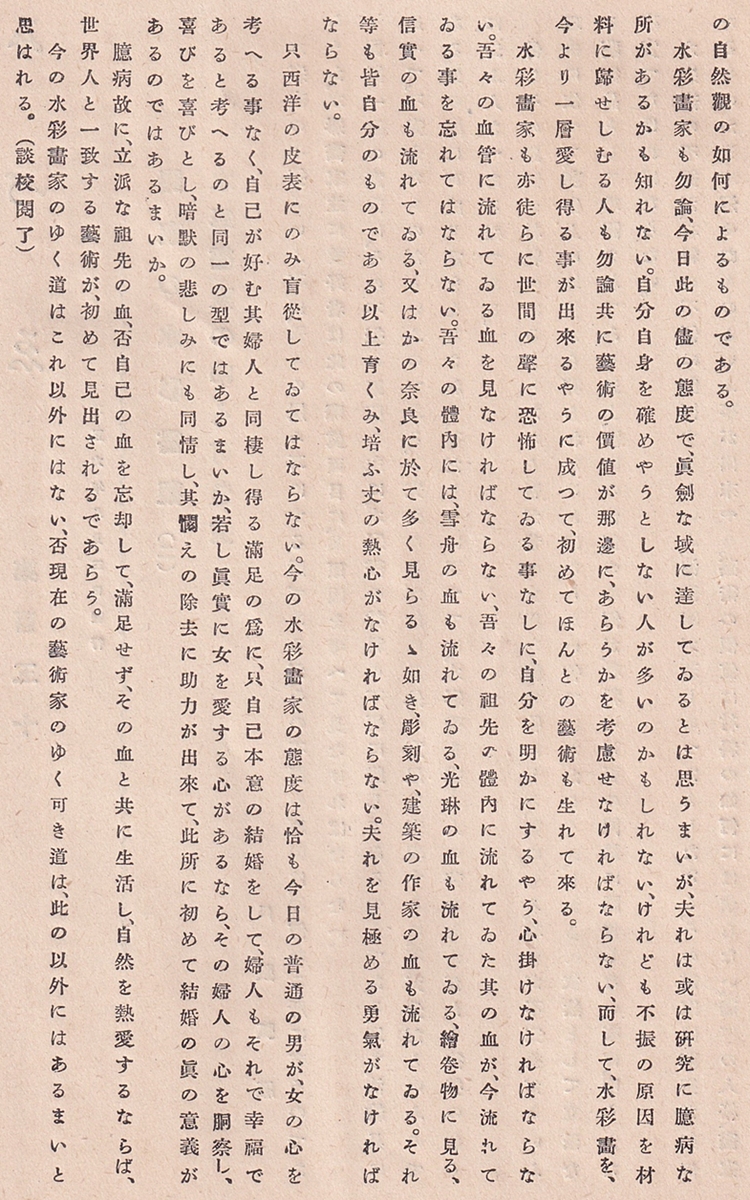 の自然觀の如何によるものである。
水彩畫家も勿論、今日此の儘の態度で、眞劍な域に達してゐるとは思うまいが、夫れは或は硏究に臆病な
所があるかも知れない。自分自身を確めやうとしない人が多いのかもしれない、けれども不振の原因を材
料に歸せしむる人も勿論共に藝術の價値が那邊に、あらうかを考慮せなければならない、而して、水彩畫を、
今より一層愛し得る事が出來るやうに成つて、初めてほんとの藝術も生れて來る。
水彩畫家も亦徒らに世間の聲に恐怖してゐる事なしに、自分を明かにするやう、心掛けなければならな
い。吾々の血管に流れてゐる血を見なければならない、吾々の祖先の體內に流れてゐた其の血が、今流れて
ゐる事を忘れてはならない。吾々の體內には、雪舟の血も流れてゐる、光琳の血も流れてゐる、繪卷物に見る、
信實の血も流れてゐる、又はかの奈良に於て多く見らるゝ如き、彫刻や、建築の作家の血も流れてゐる。それ
等も皆自分のものである以上育くみ、培ふ丈の熱心がなければならない。夫れを見極める勇氣がなければ
ならない。
只西洋の皮表にのみ盲從してゐてはならない。今の水彩畫家の態度は、恰も今日の普通の男が、女の心を
考へる事なく、自己が好む其婦人と同棲し得る滿足の爲に、只自己本意の結婚をして、婦人もそれで幸福で
あると考へるのと同一の型ではあるまいか、若し眞實に女を愛する心があるなら、その婦人の心を洞察し、
喜びを喜びとし、暗默の悲しみにも同情し、其憫えの除去に助力が出來て、此所に初めて結婚の眞の意義が
あるのではあるまいか。
臆病故に、立派な祖先の血、否自己の血を忘却して、滿足せず、その血と共に生活し、自然を熱愛するならば、
世界人と一致する藝術が、初めて見出されるであらう。
今の水彩畫家のゆく道はこれ以外にはない、否現在の藝術家のゆく可き道は、此の以外にはあるまいと
思はれる。（談校閱了）